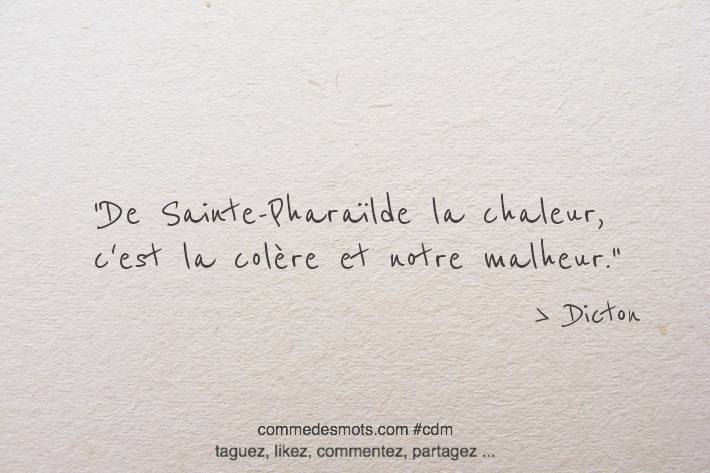 "De Sainte-Pharaïlde la chaleur,
c'est la colère et notre malheur."
> Dicton
commedesmots.com #cdm
taguez, likez, commentez, partagez ...